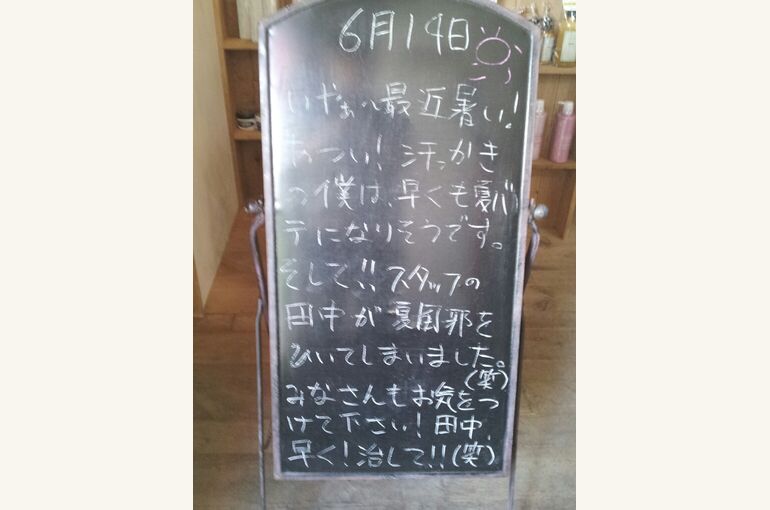 6月14日
いやぁ、最近暑い!
あつい! 汗っかき
の僕は、早くも夏バ
テになりそうです。
そして!! スタッフの
田中が夏風邪を
ひいてしまいました。
(笑)
みなさんもお気をつ
けて下さい! 田中、
早く!治して!!(笑)